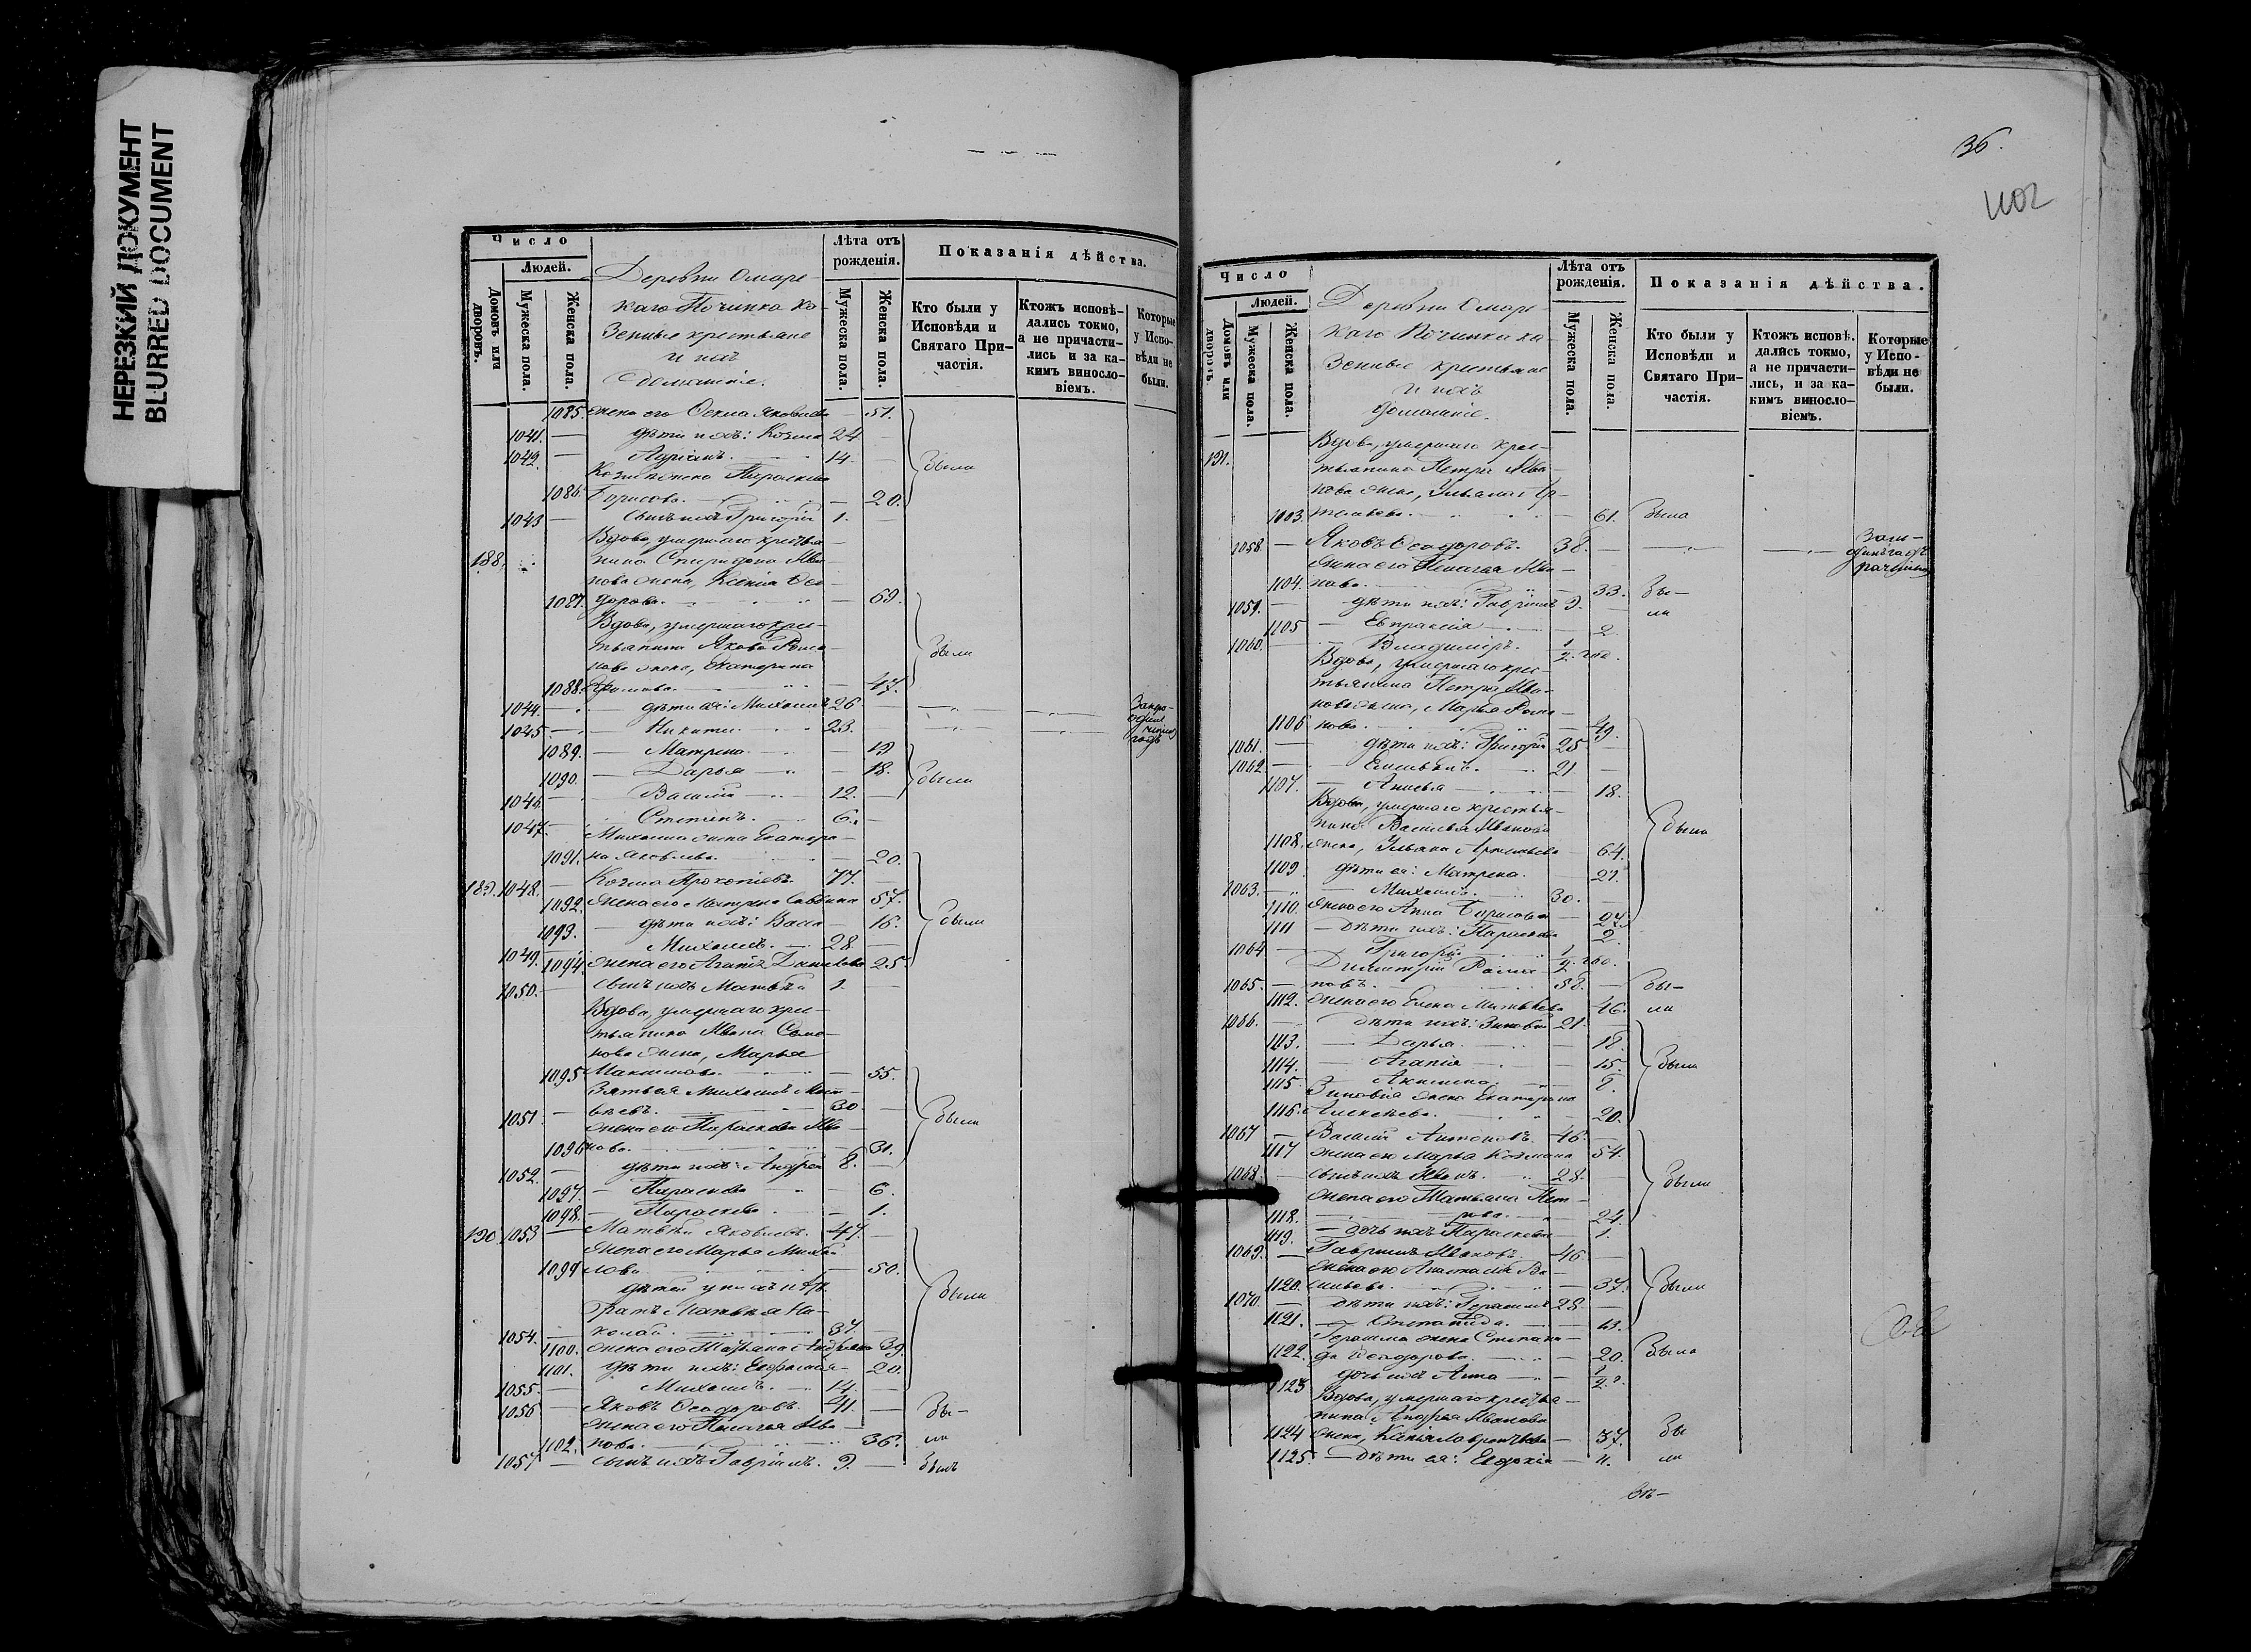 НЕРЕЗКИЙ ДОКУМЕНТ
BLURRED DOCUMENT
Число
Людей.
Домовъ или дворовъ.
Мужеска пола.
Женска пола.
Деревни Омарс-
каго Починка ка-
зенные крестьяне
и ихъ
домашніе.
Лѣта отъ рожденія.
Мужеска пола.
Женска пола.
Показанія дѣйства.
Кто были у Исповѣди и Святаго При-частія.
Ктожъ исповѣ-дались токмо, а не причасти-лись и за ка-кимъ винослo-віемъ.
Которые у Испо-вѣди не были.
1085. жена его Яковлева — 51.
1041. — дѣти ихъ: Козма 24 —
1042. — Адріанъ. 14. — были
Козмы жена
1086. Борисова. — 20.
1043 — сынъ ихъ Григорій 1. —
Вдова, умершаго крестья-
188. нина Спиридона Ива-
нова жена, Ксенія Ѳео-
1087. дорова. — 69.
Вдова, умершаго крес-
тьянина Якова Рома-
нова жена, Екатерина — были
1088. — 47.
1044. — дѣти ея: Михаилъ 26
1045. — Никита 23.
1089. — Матрена. — 19
1090. — Дарья — 18. были
1046. — Василій — 12. —
1047. Степанъ. — 6. —
Михаила жена Екатери-
1091. на Яковлева. — 20.
189. 1048. — Козма Прокопіевъ. 77. —
1092. жена его Матрена Саввина 57.
1093. — дѣти ихъ: Васса — 16. были
1049. — Михаилъ. — 28. —
1094. жена его Агапія Данилова 25.
1050. — сынъ ихъ Матвѣй 1. —
Вдова, умершаго крес-
тьянина Ивана Симо-
нова жена, Марья
1095 Максимова. — 55.
Зятья Михаилъ Мат-
1051. — вѣевъ. — 30 — были
жена его Параскева Ива-
1096 нова. — 31.
1052. — дѣти ихъ: Андрей 8. —
1097. — Параскева — 6.
1098. — Параскева — 1.
190. 1053 — Матвѣй Яковлевъ. 47. —
жена его Марья Михай-
1099 лова — 50.
дѣтей у нихъ нѣтъ. были
братъ Матвѣя Ни-
1054. — колай. — 37. —
1100. жена его Татьяна Андреева 39.
1101. дѣти ихъ: Евфросинія — 20.
1055. — Михаилъ. — 14. —
1056 — Яковъ Ѳеодоровъ. 41. — бы-
жена его Пелагея Ива-
1102. нова. — 36. ли
1057 — сынъ ихъ Гавріилъ. 9. — былъ
36.
1102
Число
Людей.
Домовъ или дворовъ.
Мужеска пола.
Женска пола.
Деревни Омарс-
каго Починка ка-
зенные крестьяне
и ихъ
домашніе.
Лѣта отъ рожденія.
Мужеска пола.
Женска пола.
Показанія дѣйства.
Кто были у Исповѣди и Святаго При-частія.
Ктожъ исповѣ. дались токмо, а не причасти-лись, и за ка-кимъ винослo-віемъ.
Которые у Испо-вѣди не были.
Вдова, умершаго крес-
191. тьянина Петра Ива-
нова жена, Ульяна Ар-
1103. темьева. — 61. была
1058. — Яковъ Ѳеодоровъ. 38. —
жена его Пелагея Ива-
1104. нова. — 33. бы-
1059. — дѣти ихъ: Гавріилъ 9. — ли
1105 — Евпраксія — 2
1060. — Владиміръ. 1/2 год.
Вдова, умершаго крес-
тьянина Петра Ива-
нова жена, Марья Рома-
1106 нова. — 49.
1061. — дѣти ихъ: Григорій 25 —
1062 — Емельянъ. 21 —
1107. — Анисья — 18.
Вдова, умершаго крестья-
нина Василья Иванова были
1108. жена, Ульяна Артемьева — 64.
1109 дѣти ея: Матрена. 21.
1063. — Михаилъ. 30. —
1110. жена его Анна Борисова — 27.
1111 — дѣти ихъ: Параскева 2.
1064 — Григорій. 1/2 год.
Димитрій Рома-
1065. — новъ. 58. — бы-
1112. жена его Елена Матвѣева 46. ли
1066. — дѣти ихъ: Зиновій 21. —
1113. — Дарья. — 18.
1114. — Агапія — 15. были
1115. — Акилина. 8.
Зиновія жена Екатерина
1116. Алексѣева. — 20.
1067 — Василій Антоновъ. 46. —
1117 жена его Марья Козмина 54.
1068. — сынъ ихъ Иванъ. 28. — были
жена его Татьяна Пет-
1118. рова. — 24.
1119. — дочь ихъ Параскева — 1.
1069. — Гавріилъ Ивановъ. 46 —
жена его Анастасія Ва-
1120. сильева. — 37. были
1070. — дѣти ихъ: Герасимъ 28. —
1121. — Степанида. 13.
Герасима жена Степани-
1122. да Ѳеодорова. — 20. была
1123 дочь ихъ Анна — 1/2 г.
Вдова, умершаго крестья-
нина Андрея Иванова
1124 жена, Ксенія Лаврентьева — 37. бы
1125. — дѣти ея: Евдокія — 11. ли